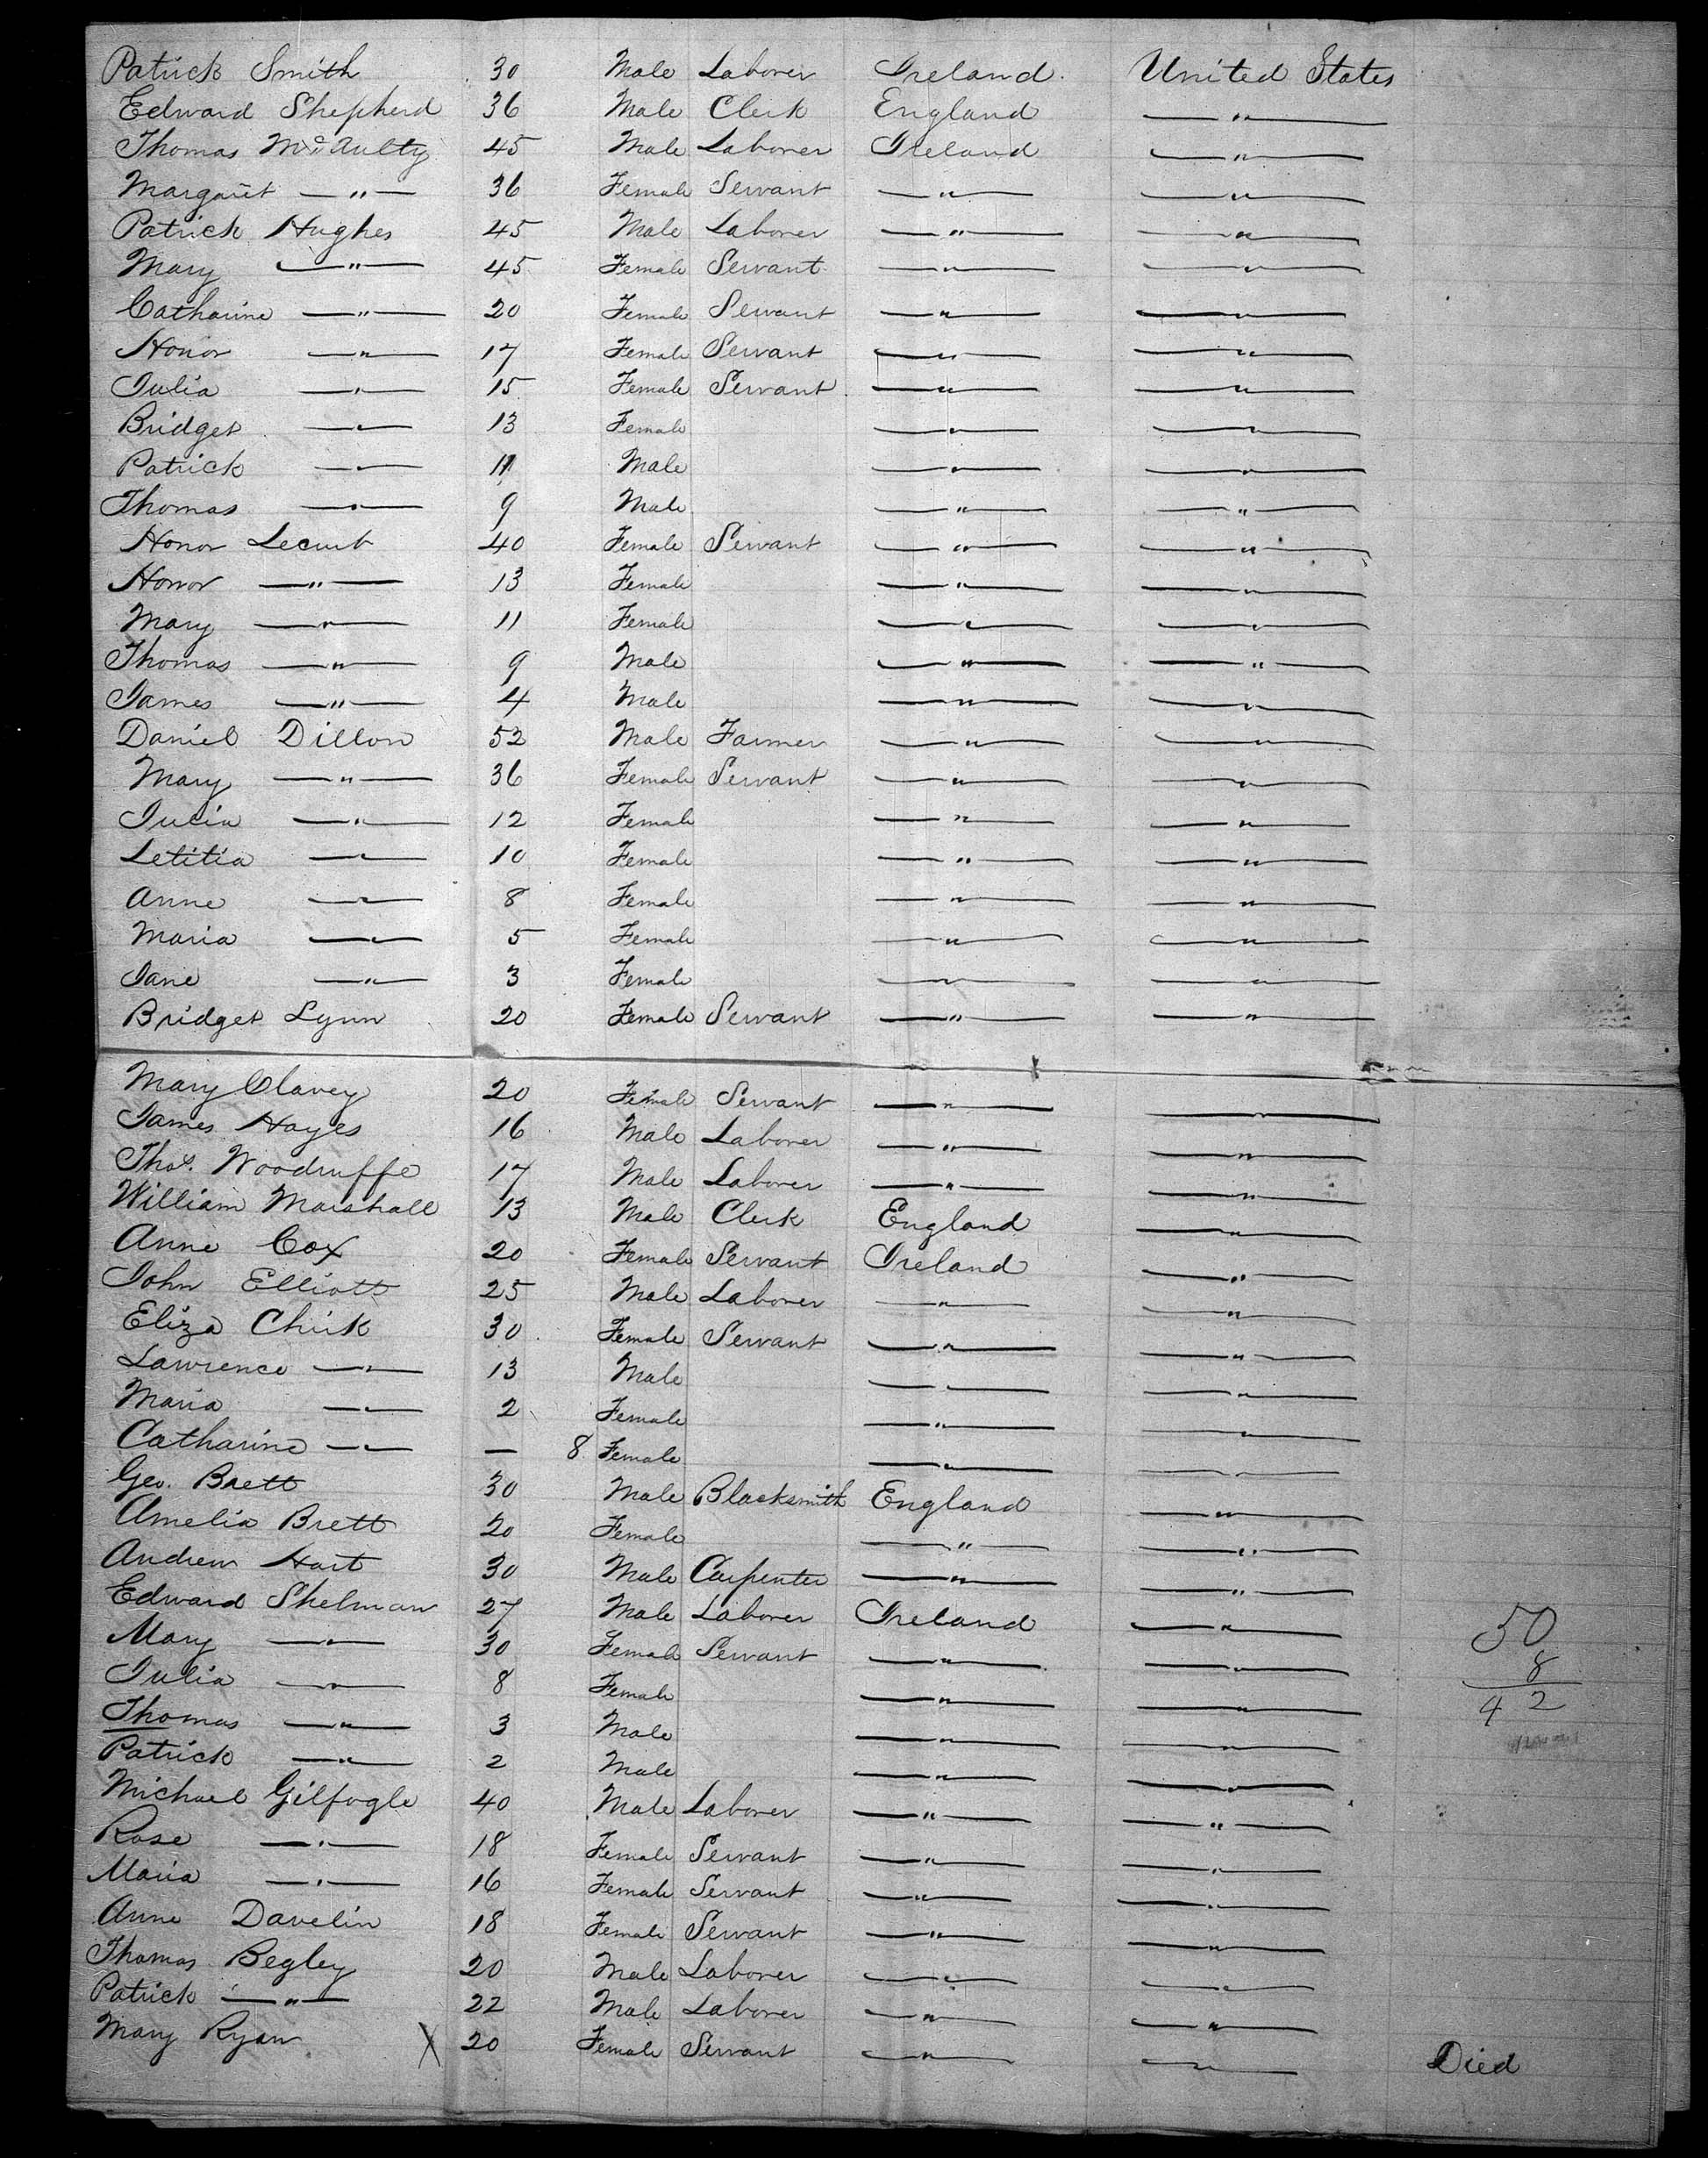 Patrick Smith 30 Male Laborer Ireland United States
Edward Shepherd 36 Male Clerk England — " —
Thomas McAulty 45 Male Laborer Ireland — " —
Margaret — " — 36 Female Servant — " — — " —
Patrick Hughes 45 Male Laborer — " — — " —
Mary — " — 45 Female Servant — " — — " —
Catharine — " — 20 Female Servant — " — — " —
Honor — " — 17 Female Servant — " — — " —
Julia — " — 15 Female Servant — " — — " —
Bridget — " — 13 Female — " — — " —
Patrick — " — 11 Male — " — — " —
Thomas — " — 9 Male — " — — " —
Honor 40 Female Servant — " — — " —
Honor — " — 13 Female — " — — " —
Mary — " — 11 Female — " — — " —
Thomas — " — 9 Male — " — — " —
James — " — 4 Male — " — — " —
Daniel Dillon 52 Male Farmer — " — — " —
Mary — " — 36 Female Servant — " — — " —
— " — 12 Female — " — — " —
Letitia — " — 10 Female — " — — " —
Anne — " — 8 Female — " — — " —
Maria — " — 5 Female — " — — " —
Jane — " — 3 Female — " — — " —
Bridget Lynn 20 Female Servant — " — — " —
Mary Clavey 20 Female Servant — " — — " —
James Hayes 16 Male Laborer — " — — " —
Thos. Woodruffe 17 Male Laborer — " — — " —
William Marshall 13 Male Clerk England — " —
Anne Cox 20 Female Servant Ireland — " —
John Elliott 25 Male Laborer — " — — " —
Eliza 30 Female Servant — " — — " —
Lawrence — " — 13 Male — " — — " —
Maria — " — 2 Female — " — — " —
Catharine — " — — 8 Female — " — — " —
Geo. Brett 30 Male Blacksmith England — " —
Amelia Brett 20 Female — " — — " —
Andrew Hart 30 Male Carpenter — " — — " —
Edward Shelman 27 Male Laborer Ireland — " —
Mary — " — 30 Female Servant — " — — " —
Julia — " — 8 Female — " — — " —
Thomas — " — 3 Male — " — — " —
Patrick — " — 2 Male — " — — " —
Michael Gilfogle 40 Male Laborer — " — — " —
Rose — " — 18 Female Servant — " — — " —
Maria — " — 16 Female Servant — " — — " —
Anne Davelin 18 Female Servant — " — — " —
Thomas Begley 20 Male Laborer — " — — " —
Patrick — " — 22 Male Laborer — " — — " —
Mary Ryan X 20 Female Servant — " — — " — Died
50
8
42